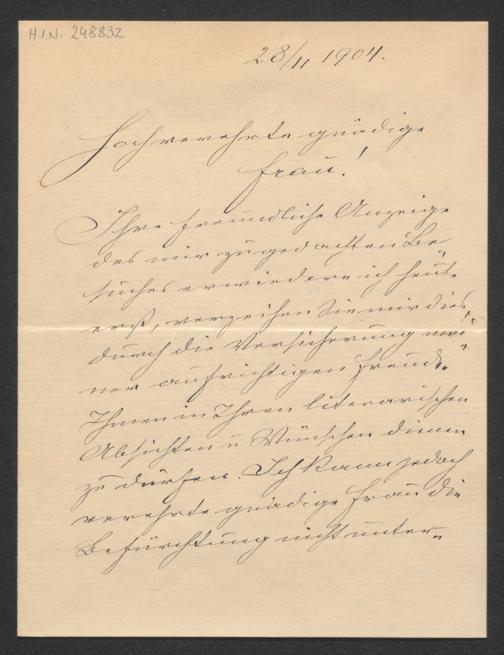 H.I.N. 248832
28/11 1904.
Hochverehrte gnädige
Frau!
Ihre freundliche Anzeige
des mir zugedachten Be-
suches erwiedere ich heute
erst, verzeihen Sie mir dies
durch die Versicherung mei-
ner aufrichtigen Freude,
Ihnen in Ihren literarischen
Absichten u Wünschen dienen
zu dürfen. Ich kann jedoch
verehrte gnädige Frau die
Befürchtung nicht unter-